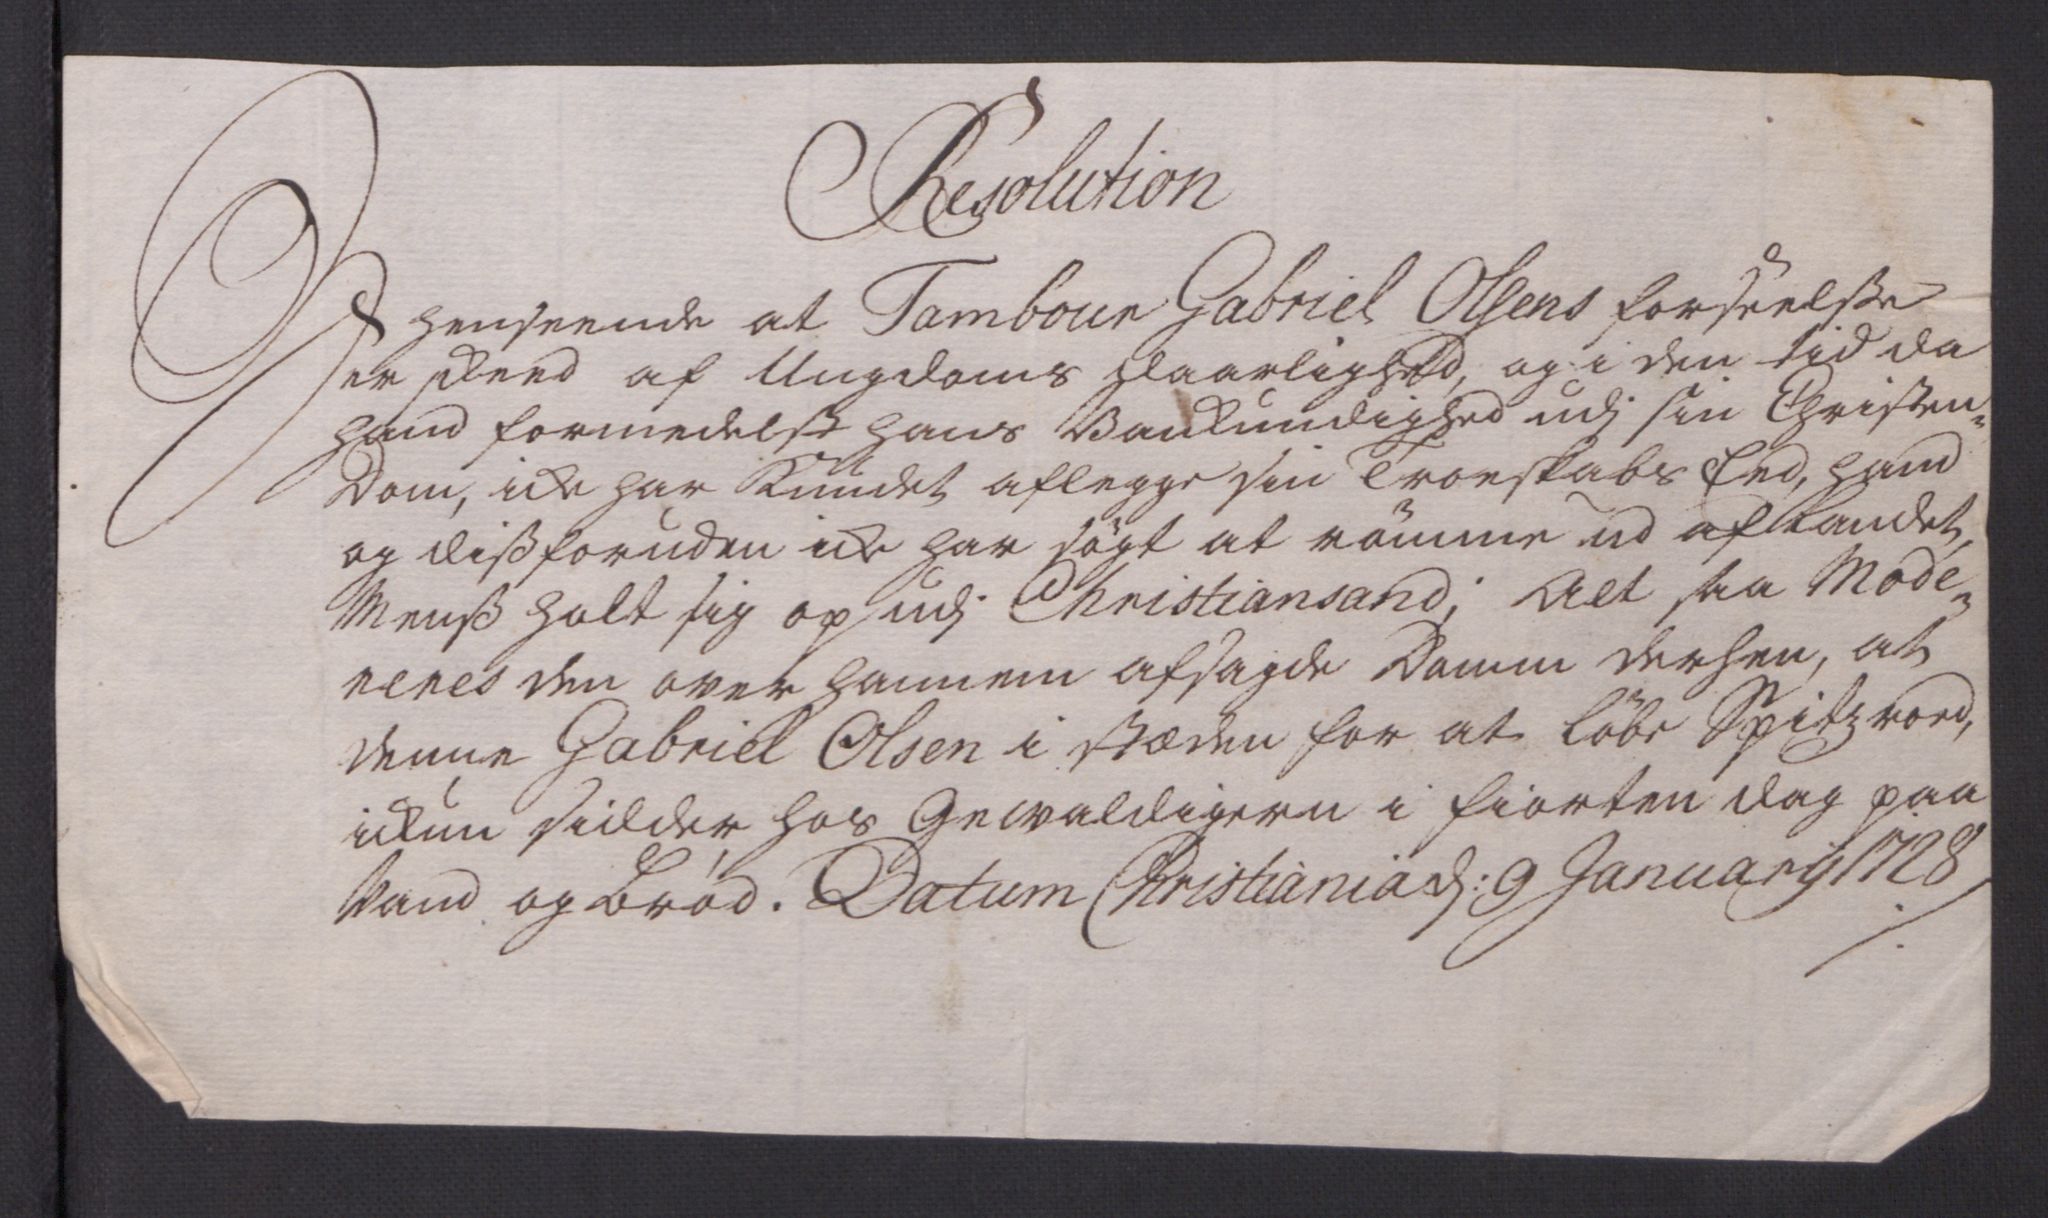 Resolution
J henseende at Tambour Gabriel Olsens forseelsse
er skeed af Ungdoms Daarlighed, og i den tid da
hand formedelst hans Vankundighed udj sin Christen-
Dom, icke har Kundet aflegge sin Troeskabs Eed, hand
og dissforuden icke har søgt at römme ud af Landet,
Menss holt sig op udj Christiansand; Alt saa Mode-
reres den over hannem afsagde Domm derhen, at
denne Gabriel Olsen i stæden for at løbe Spitzroed,
ickun sidder hos Gewaldigeren i fiorten dag paa
Vand og Brød. Datum Christiania d: 9 Januarij 1728